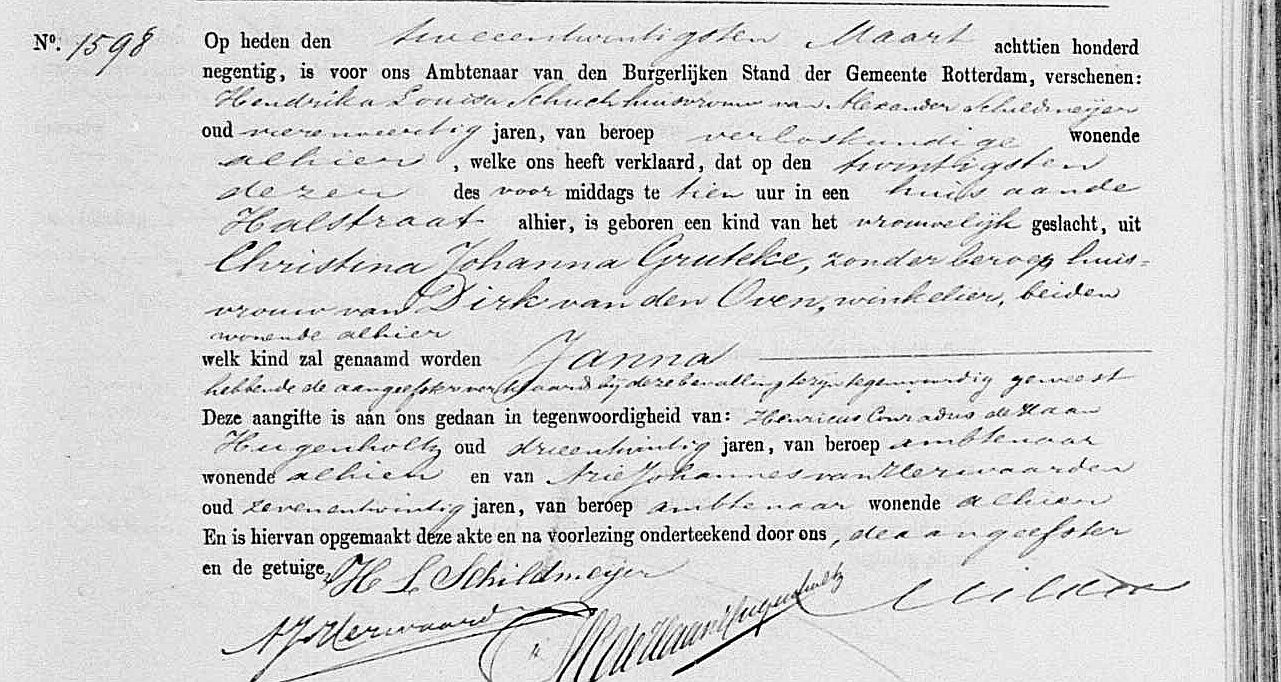 No. 1598
Op heden den tweeentwintigsten Maart achttien honderd
negentig, is voor ons Ambtenaar van den Burgerlijken Stand der Gemeente Rotterdam, verschenen:
Hendrika Louisa Schuch huisvrouw van Alexander Schildmeijer
oud vierenveertig jaren, van beroep verloskundige wonende
alhier, welke ons heeft verklaard, dat op den twintigsten
dezer des voor middags te tien uur in een huis aan de
Halstraat alhier, is geboren een kind van het vrouwelijk geslacht, uit
Christina Johanna Grutcke, zonder beroep huis=
vrouw van Dirk van den Oven, winkelier, beiden
wonende alhier
welk kind zal genaamd worden Janna
hebbende de aangeefster verklaard bij deze bevalling te zijn tegenwoordig geweest
Deze aangifte is aan ons gedaan in tegenwoordigheid van: Henricus Conradus de Haan
Hugenholtz oud drieentwintig jaren, van beroep ambtenaar
wonende alhier en van Arie Johannes van Herwaarden
oud zevenentwintig jaren, van beroep ambtenaar wonende alhier
En is hiervan opgemaakt deze akte en na voorlezing onderteekend door ons, de aangeefster
en de getuige, H L Schildmeyer
AJvHerwaard
HCdeHaanHugenholtz